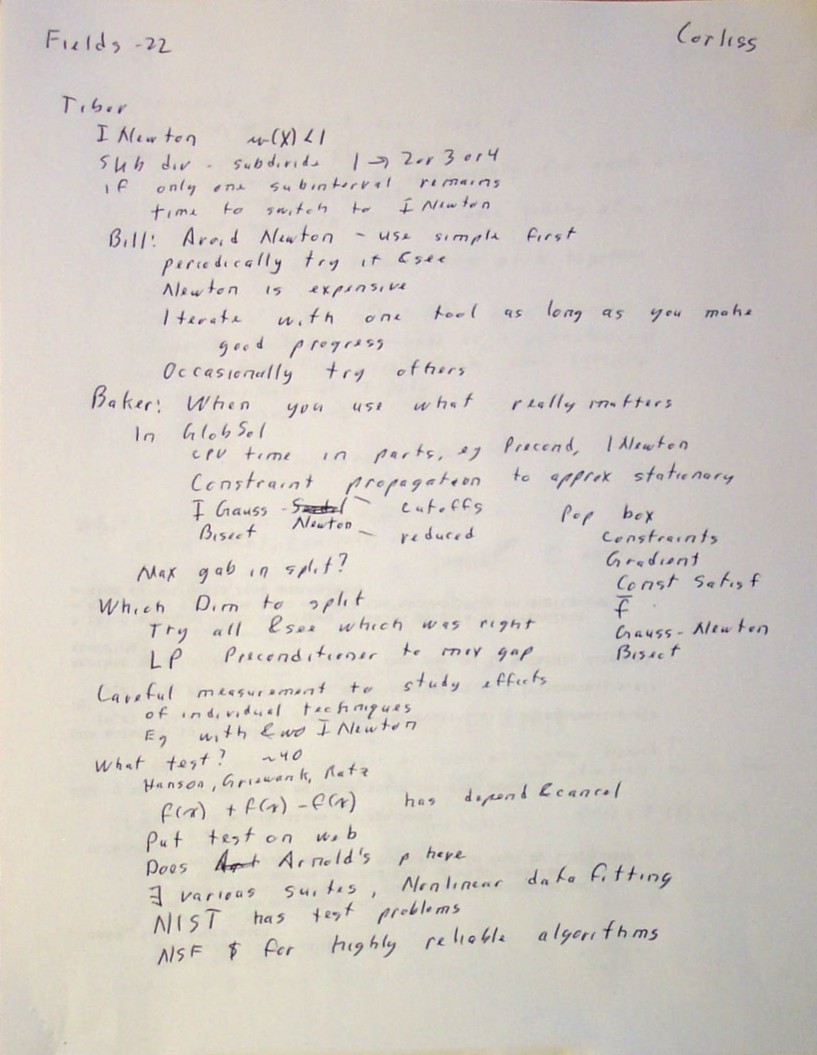 Fields -22
Corliss
Tibor
I Newton w(X) < 1
Subdiv - subdivide 1 → 2 or 3 or 4
if only one subinterval remains
time to switch to I Newton
Bill: Avoid Newton - use simple first
periodically try it & see
Newton is expensive
Iterate with one tool as long as you make
good progress
Occasionally try others
Baker: When you use what really matters
In GlobSol
CPU time in parts, eg Precond, I Newton
Constraint propagation to approx stationary
I Gauss - Seidel - cutoffs
Bisect Newton - reduced
Max gab in split?
Pop box
Constraints
Gradient
Const Satisf
f̅
Gauss-Newton
Bisect
Which Dim to split
Try all & see which was right
LP Preconditioner to max gap
Careful measurement to study effects
of individual techniques
Eg with & wo I Newton
What test? ~40
Hanson, Griewank, Ratz
f(x) + f(x) - f(x) has depend & cancel
Put test on web
Does Arnold's p here
∃ various suites, Nonlinear data fitting
NIST has test problems
NSF $ for highly reliable algorithms